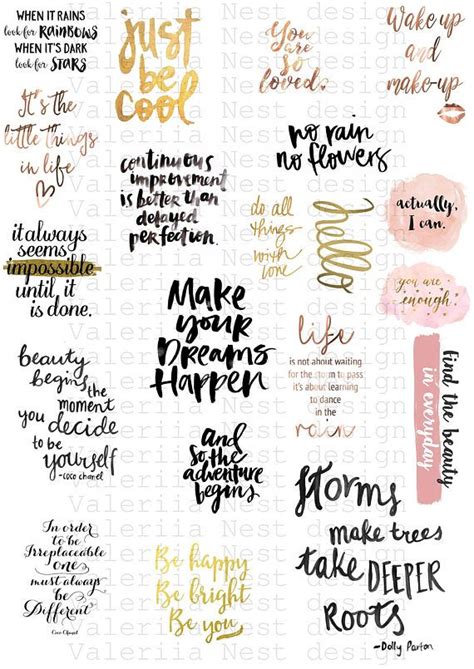 WHEN IT RAINS
look for RAINBOWS
WHEN IT'S DARK
look for STARS
just
be
cool
You
are
so
loved.
Wake up
and
make-up
It's the
little things
in life
no rain
no flowers
continuous
improvement
is better than
delayed
perfection.
actually,
I can.
do all
things
with
love
hello
it always
seems
impossible
until it
is done.
you are
enough.
Make
your
Dreams
Happen
life
is not about waiting
for the storm to pass
it's about learning
to dance
in the
rain
find the beauty
in everyday
beauty
begins
the
moment
you decide
to be
yourself
-COCO CHANEL
and
so the
adventure
begins
Storms
make trees
take DEEPER
ROOTS
-Dolly Parton
In order
to be
Irreplaceable
one
must always
be
Different
Coco Chanel
Be happy
Be bright
Be you
Valeriia Nest design